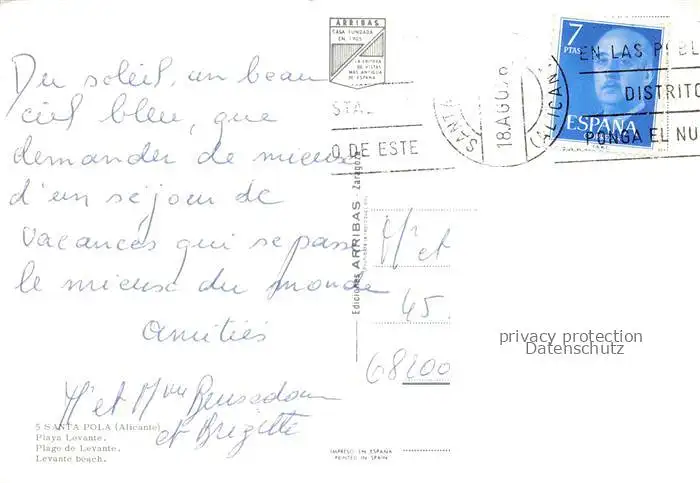 Du soleil, un beau
ciel bleu, que
demander de mieux
d'un séjour de
vacances qui se passe
le mieux du monde
amitiés
Mr et Mme
et Brigitte
5 SANTA POLA (Alicante)
Playa Levante.
Plage de Levante.
Levante beach.
ARRIBAS
CASA FUNDADA
EN 1905
LA EDITORA
DE VISTAS
MAS ANTIGUA
DE ESPAÑA
Ediciones ARRIBAS - Zaragoza
SANTA
18.AGO
(ALICAN
O DE ESTE
EN LAS
DISTRITO
PONGA EL NU
7
PTAS
ESPAÑA
CORREOS
Mr et
45.
68200
privacy protection
Datenschutz
IMPRESO EN ESPAÑA
PRINTED IN SPAIN